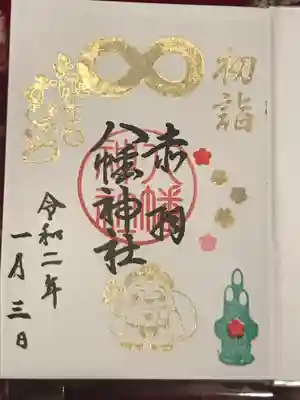 初詣
赤羽
八幡神社
令和二年
一月三日